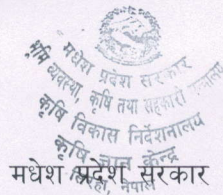 मधेश प्रदेश सरकार
भूमि व्यवस्था, कृषि तथा सहकारी
कृषि विकास निर्देशनालय
कृषि ज्ञान केन्द्र
नेपाल
मधेश प्रदेश सरकार